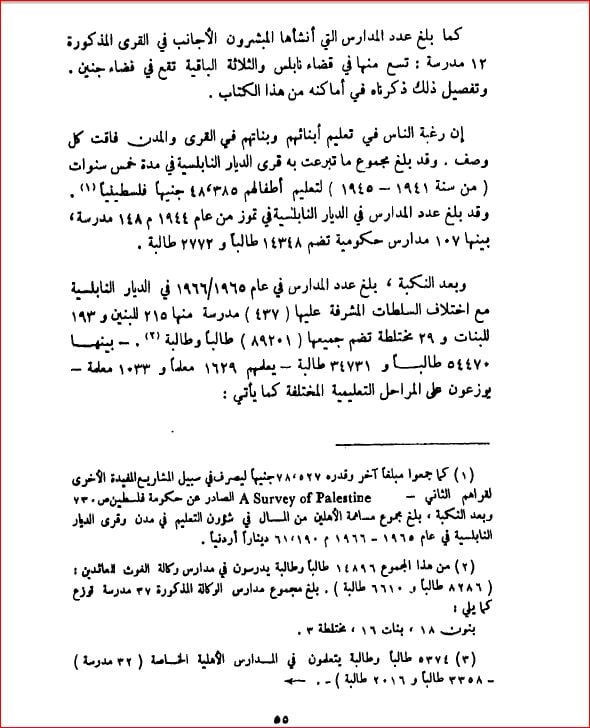 كما بلغ عدد المدارس التي أنشأها المبشرون الأجانب في القرى المذكورة
١٢ مدرسة : تسع منها في قضاء نابلس والثلاثة الباقية تقع في قضاء جنين .
وتفصيل ذلك ذكرناه في أماكنه من هذا الكتاب .
إن رغبة الناس في تعليم أبنائهم وبناتهم في القرى والمدن فاقت كل
وصف . وقد بلغ مجموع ما تبرعت به قرى الديار النابلسية في مدة خمس سنوات
( من سنة ١٩٤١ – ١٩٤٥ ) لتعليم أطفالهم ٤٨،٣٨٥ جنيهاً فلسطينياً (١) .
وقد بلغ عدد المدارس في الديار النابلسية في تموز من عام ١٩٤٤ م ١٤٨ مدرسة،
بينها ١٠٧ مدارس حكومية تضم ١٤٣٤٨ طالباً و ٢٧٧٢ طالبة .
وبعد النكبة ، بلغ عدد المدارس في عام ١٩٦٦/١٩٦٥ في الديار النابلسية
مع اختلاف السلطات المشرفة عليها ( ٤٣٧ ) مدرسة منها ٢١٥ للبنين و ١٩٣
للبنات و ٢٩ مختلطة تضم جميعها ( ٨٩٢٠١ ) طالباً وطالبة (٢) . – بينهـا
٥٤٤٧٠ طالبـاً و ٣٤٧٣١ طالبة – يعلمهم ١٦٢٩ معلماً و ١٠٣٣ معلمة –
يوزعون على المراحل التعليمية المختلفة كما يأتي :
(١) كما جمعوا مبلغاً آخر وقدره ٧٨،٥٢٧ جنيهاً ليصرف في سبيل المشاريع المفيدة الأخرى
لقراهم الثاني – A Survey of Palestine الصادر عن حكومة فلسطين ص ٧٣٠
وبعد النكبة ، بلغ مجموع مساهمة الأهلين من المـال في شؤون التعليم في مدن وقرى الديار
النابلسية في عام ١٩٦٥ – ١٩٦٦ م ٦١،١٩٠ ديناراً أردنياً .
(٢) من هذا المجموع ١٤٨٩٦ طالباً وطالبة يدرسون في مدارس وكالة الغوث للعائدين :
( ٨٢٨٦ طالباً و ٦٦١٠ طالبة ) . بلغ مجموع مدارس الوكالة المذكورة ٣٧ مدرسة توزع
كما يلي :
بنون ١٨ ، بنات ١٦ ، مختلطة ٣ .
(٣) ٥٣٧٤ طالباً وطالبة يتعلمون في المـدارس الأهلية الخاصة ( ٣٢ مدرسة )
– ٣٣٥٨ طالباً و ٢٠١٦ طالبة ) – . ←
٥٥